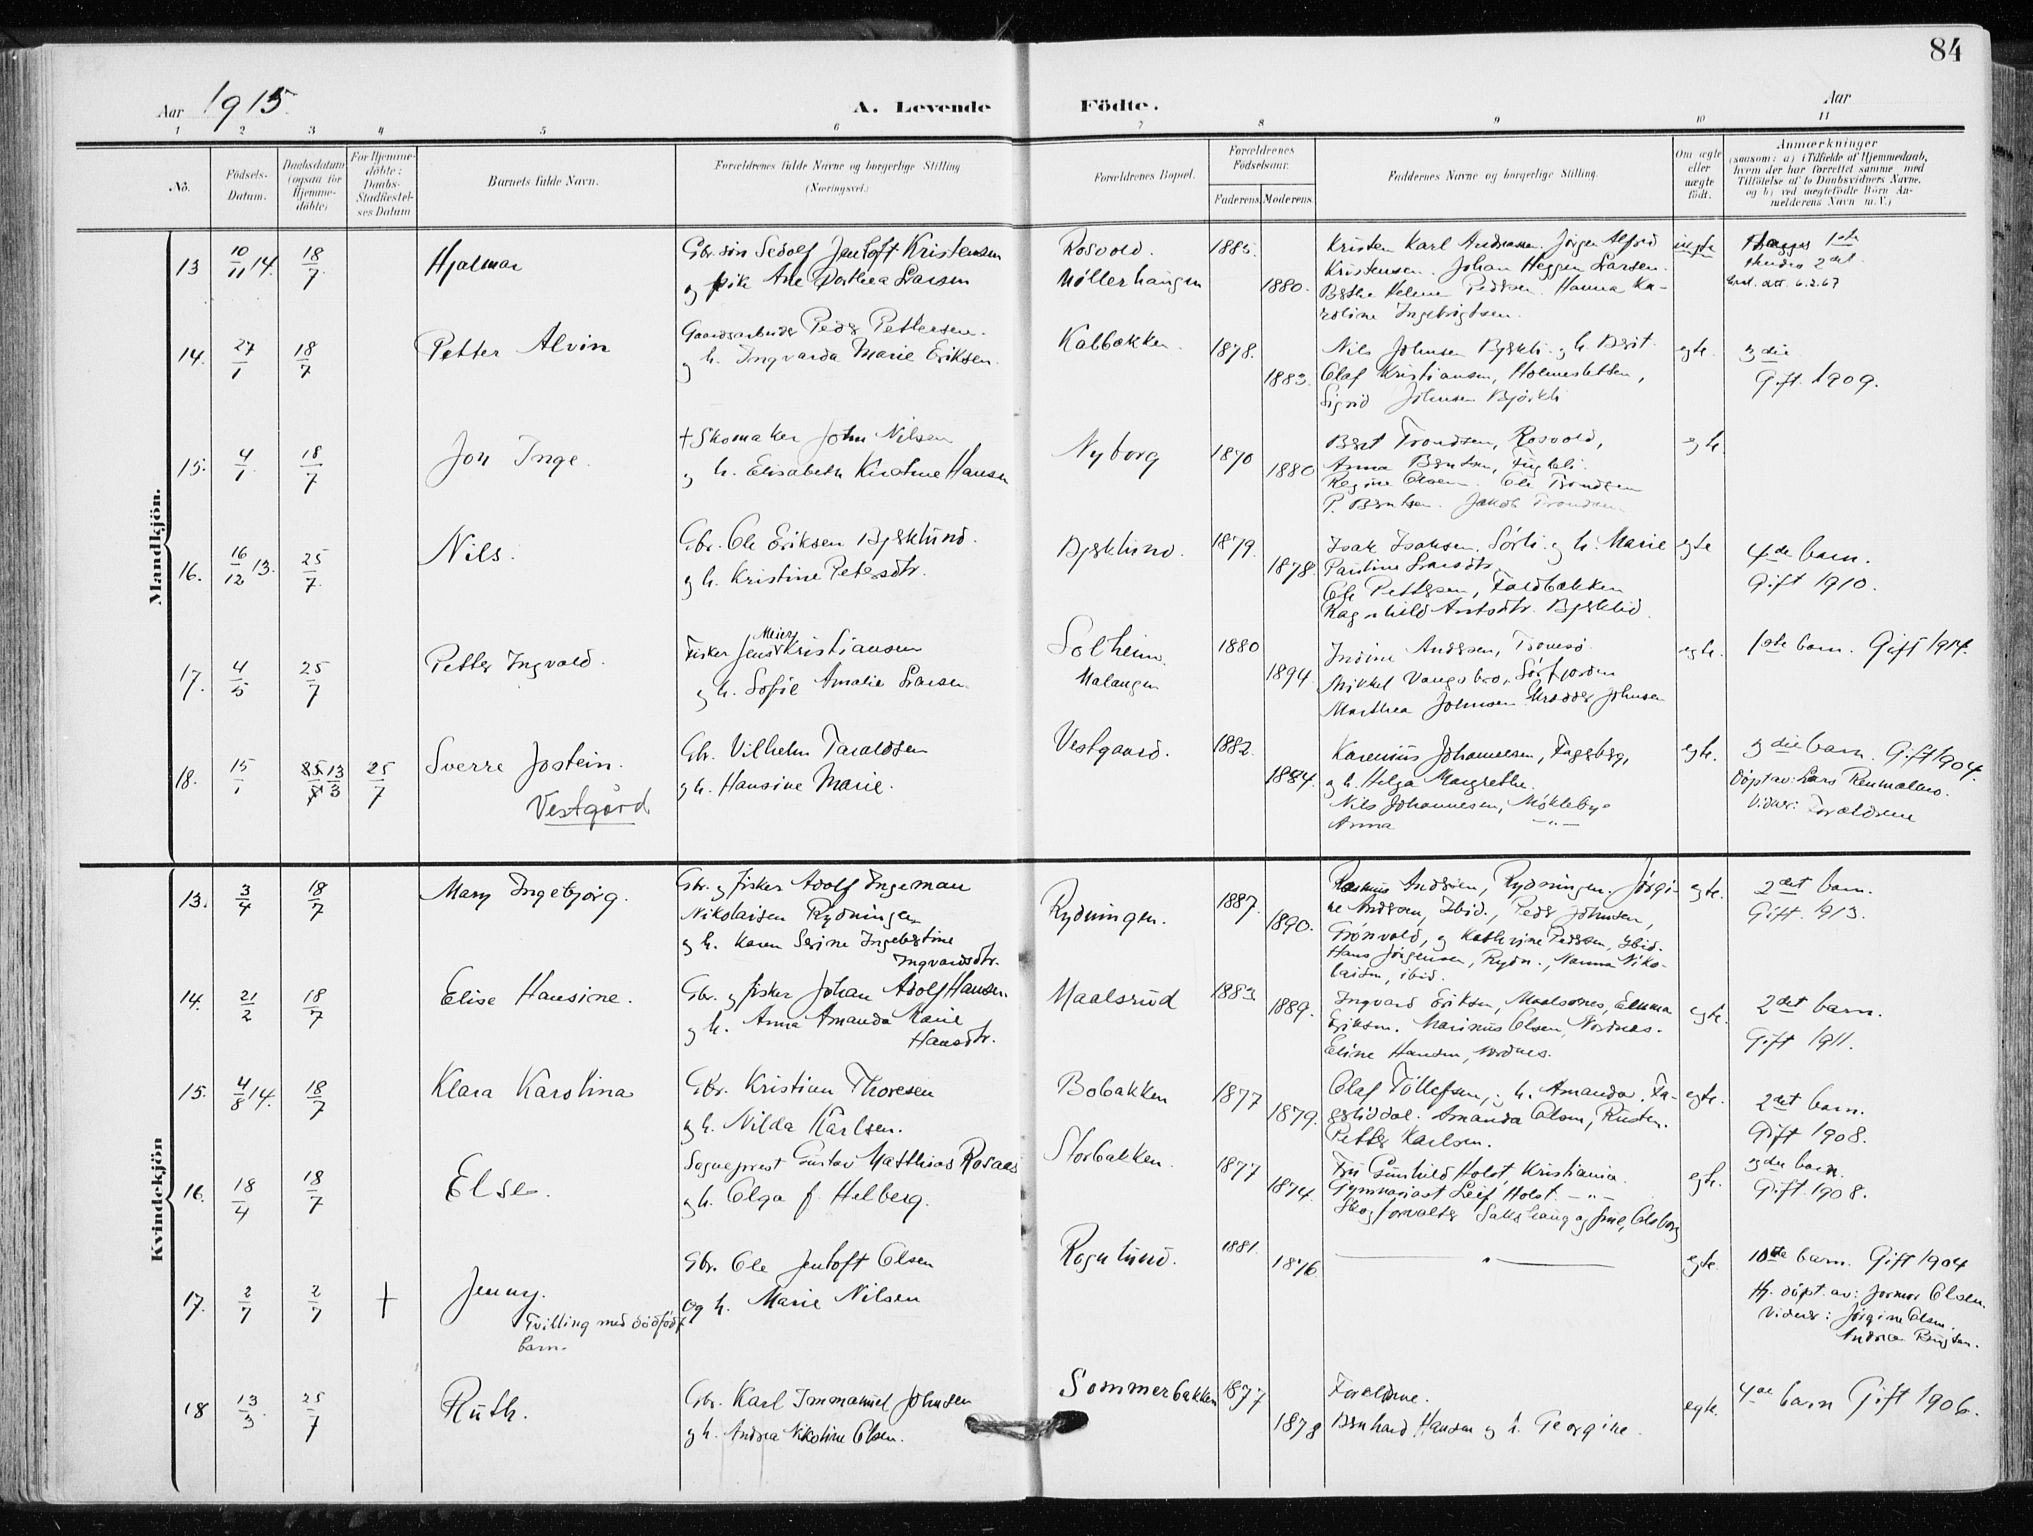 84
Aar 1915.
A. Levende Födte.
Aar
1 2 3 4 5 6 7 8 9 10 11
No.
Födsels-Datum.
Daabsdatum (ogsaa for Hjemme-döbte)
For Hjemme-döbte: Daabs-Stadfæstel-ses Datum
Barnets fulde Navn.
Forældrenes fulde Navne og borgerlige Stilling (Næringsvei.)
Forældrenes Bopæl.
Forældrenes Födselsaar.
Faderens. Moderens.
Faddernes Navne og borgerlige Stilling.
Om ægte eller uægte födt.
Anmærkninger
(saasom: a) i Tilfælde af Hjemmedaab,
hvem der har forrettet samme med
Tilföielse af to Daabsvidners Navne,
og b) ved uægtefödte Börn An-
melderens Navn m.V.)
Mandkjön.
13 10/11 14. 18/7 Hjalmar
Gbr. sön Sedolf Jentoft Kristensen
og pike Ane Dorthea Larsen
Rosvold.
Møllerhaugen
1885. 1880.
Kristen Karl Andreassen. Jørgen Alfred
Kristensen. Johan Heggen Larsen.
Berthe Helene Pedersen. Hanna Ka-
roline Ingebrigtsen.
uegte
6.2.67
14. 27/1 18/7 Petter Alvin
Gaardsarbeider Peder Pettersen.
og h. Ingvarda Marie Eriksen.
Kalbakken.
1878. 1883.
Nils Johnsen Bjerkli og h. Berit
Olaf Kristiansen, Holmesletten,
Sigrid Johnsen Bjørkli
egte.
3die
Gift. 1909.
15. 4/1. 18/7 Jon Inge.
+ Skomaker John Nilsen
og h. Elisabeth Kirstine Hansen
Nyborg
1870 1880
Berit Trondsen, Rosvold,
Anna Berntsen, Fugleli.
Regine Olsen. Ole Trondsen
P. Berntsen. Jakob Trondsen
egte
16. 16/12 13. 25/7. Nils.
Gbr. Ole Eriksen Bjerklund.
og h. Kristine Petersdtr.
Bjerklund.
1879. 1878.
Isak Isaksen. Sørli og h. Marie
Pauline Larsdtr.
Ole Pettersen, Foldbakken
Ragnhild Antodtr. Bjerklid
egte
4de barn.
Gift 1910.
17. 4/5 25/7 Petter Ingvald.
Fisker Jens Meier Kristiansen
og h. Sofie Amalie Larsen.
Solheim.
Malangen
1880 1894.
Indine Andersen, Tromsø.
Mikkel Vangsbro, Sørfjorden
Marthea Johnsen. Johnsen
egte.
1ste barn. Gift 1914.
18. 15/1 13/3 25/7 Sverre Jostein.
Vestgård
Gbr. Vilhelm Taraldsen
og h. Hansine Marie.
Vestgaard.
1882. 1884.
Karenius Johannesen, Fagerberg,
og h. Helga Margrethe.
Nils Johannesen, Møkleby
Anna -"-
egte.
3die barn. Gift 1904.
Döpt av: Lars Renmælmo.
Vidner: Forældrene
Kvindekjön
13. 3/4 18/7 Mary Ingebjørg.
Gbr. og fisker Adolf Ingeman
Nikolaisen Rydningen
og h. Karen Serine Ingebertine
Ingvarsdtr.
Rydningen.
1887. 1890.
Rasmus Andersen, Rydningen. Jørgi-
ne Andersen, Ibid., Peder Johnsen,
Grönvold, og Kathrine Pedersen, Ibid.
Hans Jörgensen, Rydn., Nanna Niko-
laisen, ibid.
egte.
2det barn.
Gift. 1913.
14. 21/2 18/7 Elise Hansine.
Gbr. og fisker Johan Adolf Hansen.
og h. Anna Amanda Marie
Hansdtr.
Maalsrud
1883 1889.
Ingvard Eriksen, Maalsnes, Emma
Eriksen. Marinus Olsen, Nordnes.
Eline Hansen, Nordnes.
egte.
2det barn.
Gift 1911.
15. 4/8 14. 18/7 Klara Karolina
Gbr. Kristian Thoresen
og h. Nilda Karlsen.
Bobakken
1877 1879.
Olaf Tollefsen, og h. Amanda. Fa-
gerliddal. Amanda Olsen, Rusten.
Petter Karlsen.
egte.
2det barn.
Gift 1908.
16. 18/4 18/7 Else.
Sogneprest Gustav Matthias Rosaas
og h. Olga f. Helberg.
Storbakken.
1877 1874.
Fru Gunhild Holst, Kristiania.
Gymnasiast Leif Holst. -"-
Skogforvalter Sakshaug og frue, Olsborg
egte.
3die barn.
Gift. 1908.
17. 2/7 2/7 + Jenny.
Tvilling med dödfödt
barn.
Gbr. Ole Jentoft Olsen
og h. Marie Nilsen
Rognlund.
1881. 1876.
"
egte.
10de barn. Gift 1904
Hj. döpt. av: Jormor Olsen.
Vidner: Jørgine Olsen.
18 13/3. 25/7 Ruth.
Gbr. Karl Immanuel Johnsen
og h. Andrea Nikoline Olsen.
Sommerbakken
1877 1878
Foreldrene.
Bernhard Hansen og h. Georgine.
egte.
4de barn Gift 1906.